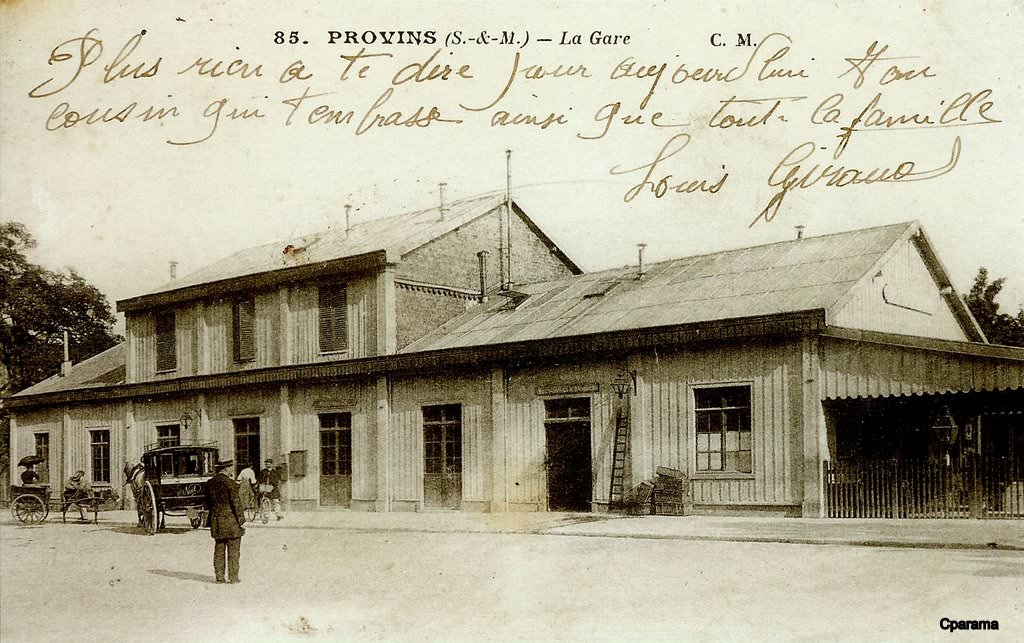 85. PROVINS (S.-&-M.) — La Gare C. M.
Plus rien a te dire pour aujourd'hui ton
cousin qui t'embrasse ainsi que toute la famille
Louis Giraud
Cparama